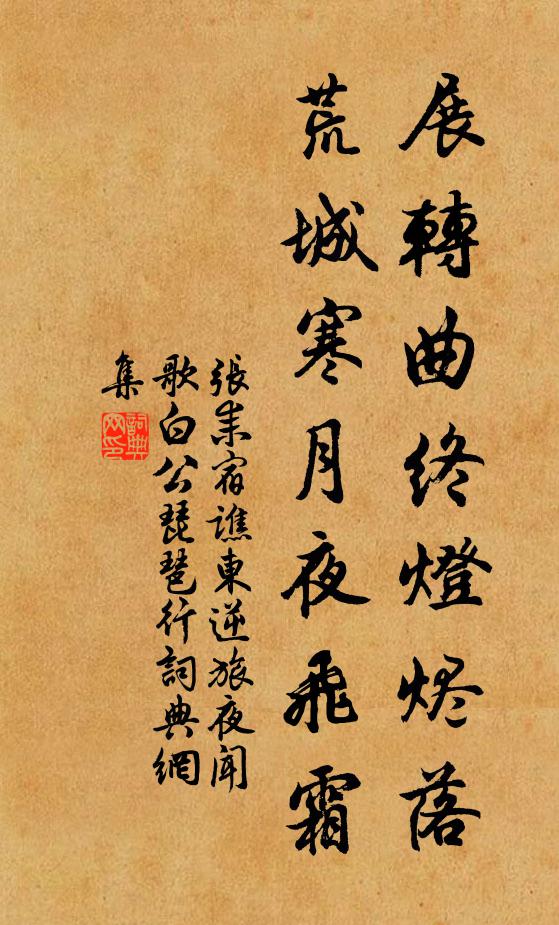 展轉曲终燈烬落
荒城寒月夜飛霜
張耒宿譙東逆旅夜聞
歌白公琵琶行詞典網
集
詞典
网印